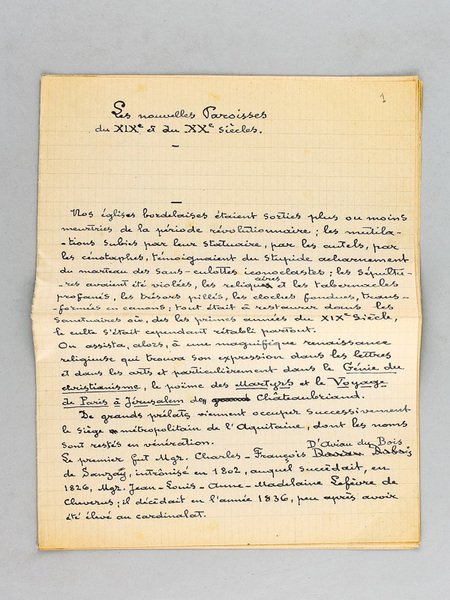 1
Les nouvelles Paroisses
du XIXe & du XXe Siècles.
Nos églises bordelaises étaient sorties plus ou moins
meurtries de la période révolutionnaire ; les mutila-
-tions subies par leur statuaire, par les autels, par
les cénotaphes, témoignaient du stupide acharnement
du marteau des sans-culottes iconoclastes ; les sépultu-
-res avaient été violées, les reliquaires et les tabernacles
profanés, les trésors pillés, les cloches fondues, trans-
-formées en canons ; tout était à restaurer dans les
sanctuaires où, dès les primes années du XIXe Siècle,
le culte s'était cependant rétabli partout.
On assista, alors, à une magnifique renaissance
religieuse qui trouva son expression dans les lettres
et dans les arts et particulièrement dans le Génie du
christianisme, le poème des Martyrs et le Voyage
de Paris à Jérusalem de Châteaubriand.
De grands prélats viennent occuper successivement
le Siège métropolitain de l'Aquitaine, dont les noms
sont restés en vénération.
Le premier fut Mgr. Charles-François D'Aviau du Bois
de Sanzay, intrônisé en 1802, auquel succédait, en
1826, Mgr. Jean-Louis-Anne-Madelaine Lefèvre de
Cheverus ; il décédait en l'année 1836, peu après avoir
été élevé au cardinalat.